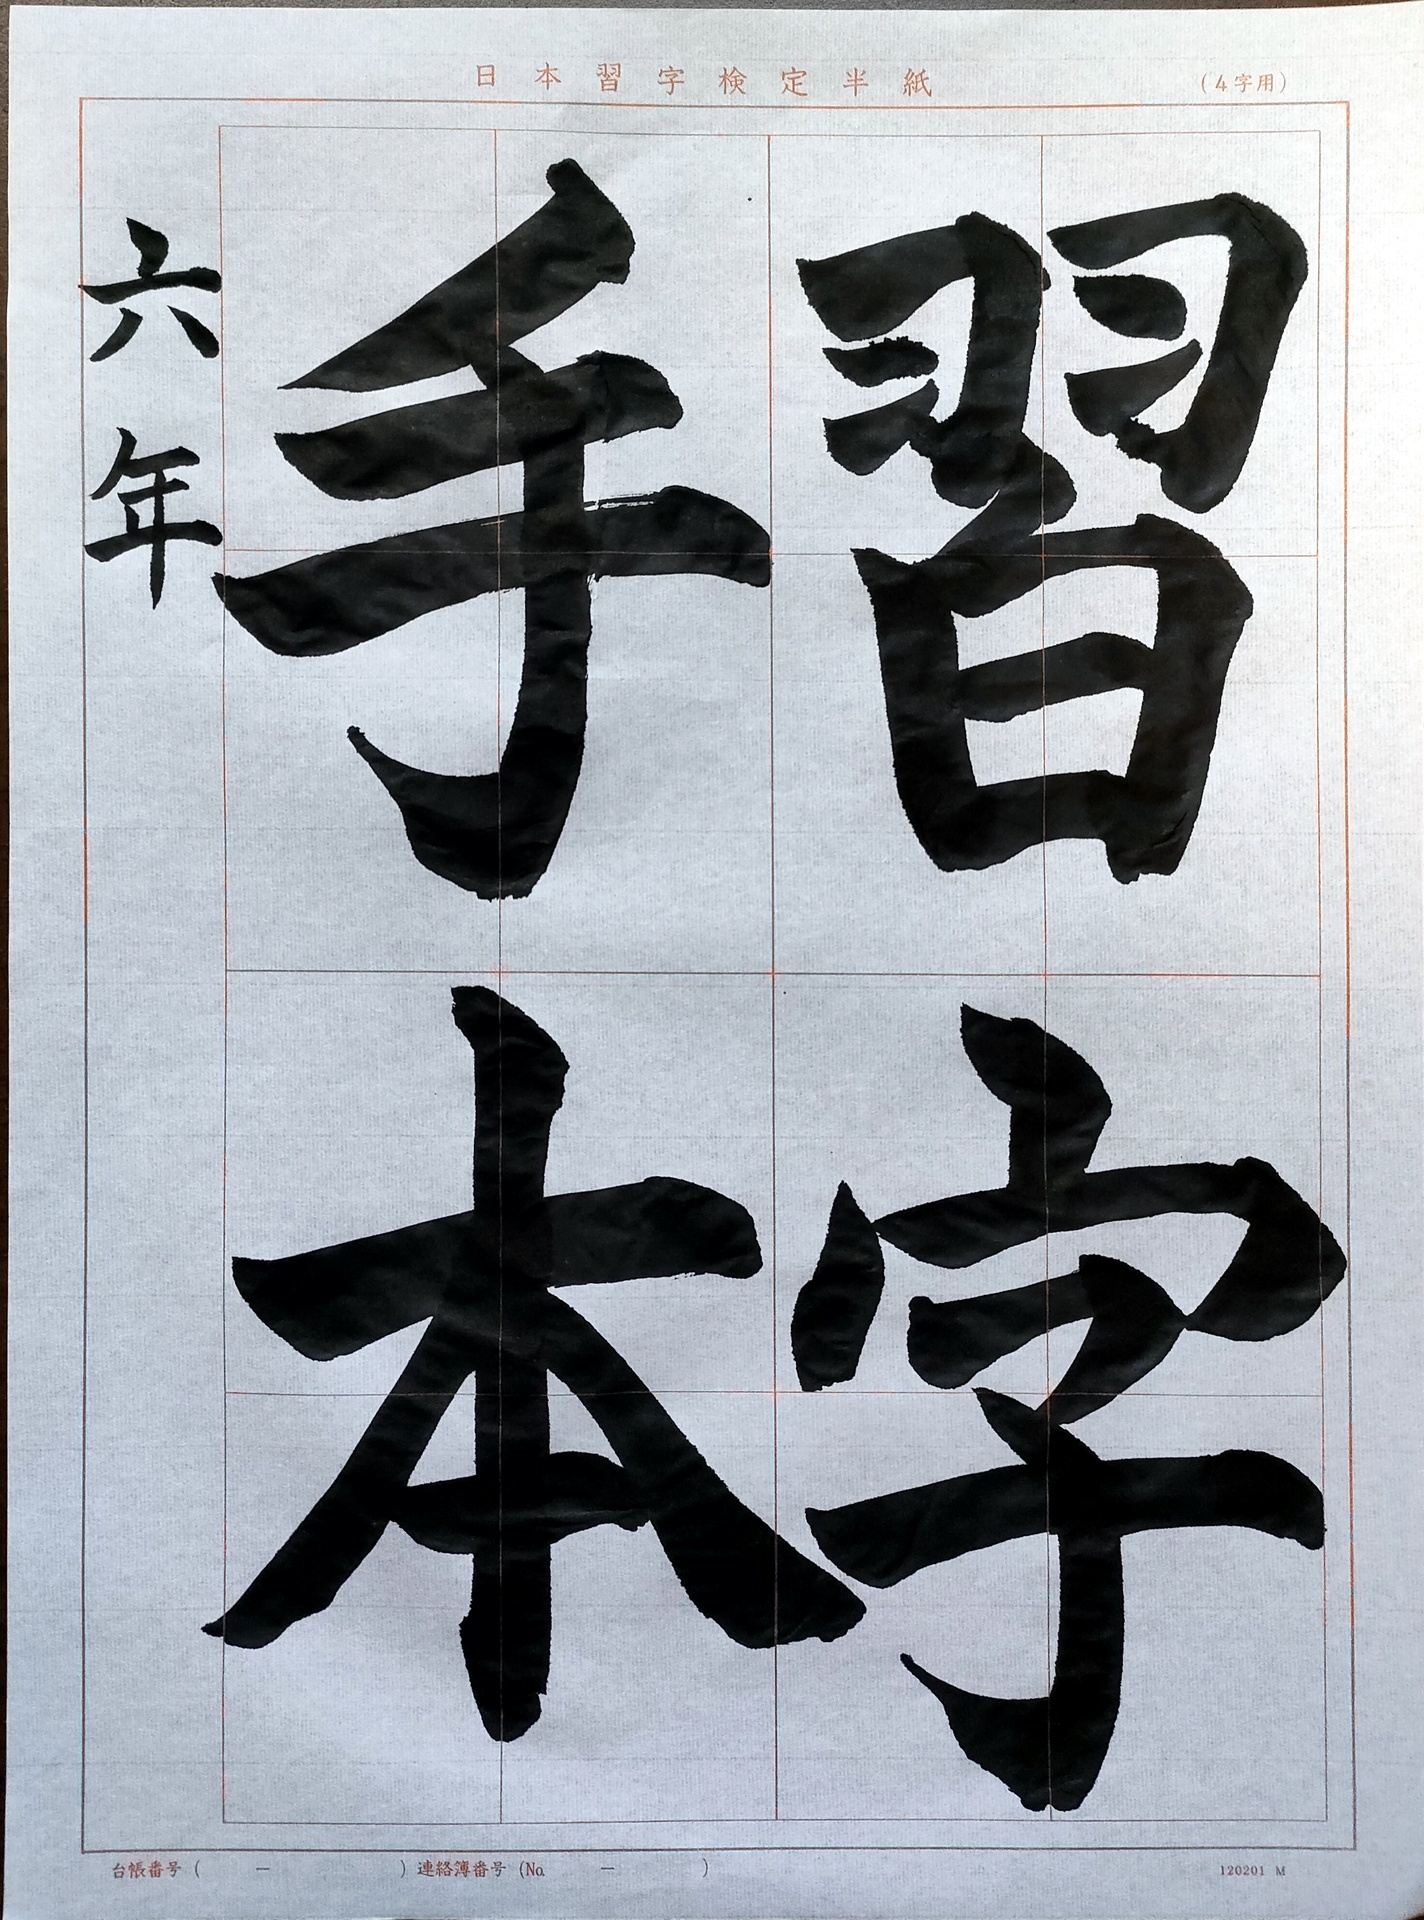 日本習字検定半紙
(4字用)
習字
手本
六年
台帳番号( － )連絡簿番号(No. － )
120201 M